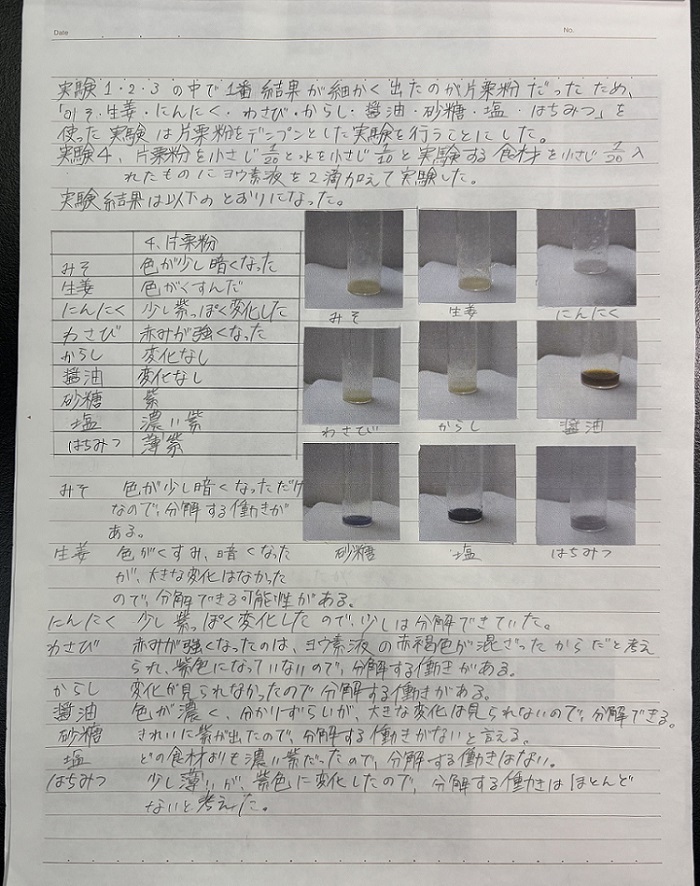 Date
No.
実験1・2・3の中で1番結果が細かく出たのが片栗粉だったため、
「みそ・生姜・にんにく・わさび・からし・醤油・砂糖・塩・はちみつ」を
使った実験は片栗粉をデンプンとした実験を行うことにした。
実験4、片栗粉を小さじ1/20と水を小さじ1/10と実験する食材を小さじ1/20入
れたものにヨウ素液を2滴加えて実験した。
実験結果は以下のとおりになった。
4、片栗粉
みそ 色が少し暗くなった
生姜 色がくすんだ
にんにく 少し紫っぽく変化した
わさび 赤みが強くなった
からし 変化なし
醤油 変化なし
砂糖 紫
塩 濃い紫
はちみつ 薄紫
みそ 生姜 にんにく
わさび からし 醤油
砂糖 塩 はちみつ
みそ 色が少し暗くなっただけ
なので、分解する働きが
ある。
生姜 色がくすみ、暗くなった
が、大きな変化はなかった
ので、分解できる可能性がある。
にんにく 少し紫っぽく変化したので、少しは分解できていた。
わさび 赤みが強くなったのは、ヨウ素液の赤褐色が混ざったからだと考え
られ、紫色になっていないので、分解する働きがある。
からし 変化が見られなかったので分解する働きがある。
醤油 色が濃く、分かりずらいが、大きな変化は見られないので、分解できる。
砂糖 きれいに紫が出たので、分解する働きがないと言える。
塩 どの食材よりも濃い紫だったので、分解する働きはない。
はちみつ 少し薄いが、紫色に変化したので、分解する働きはほとんど
ないと考えた。